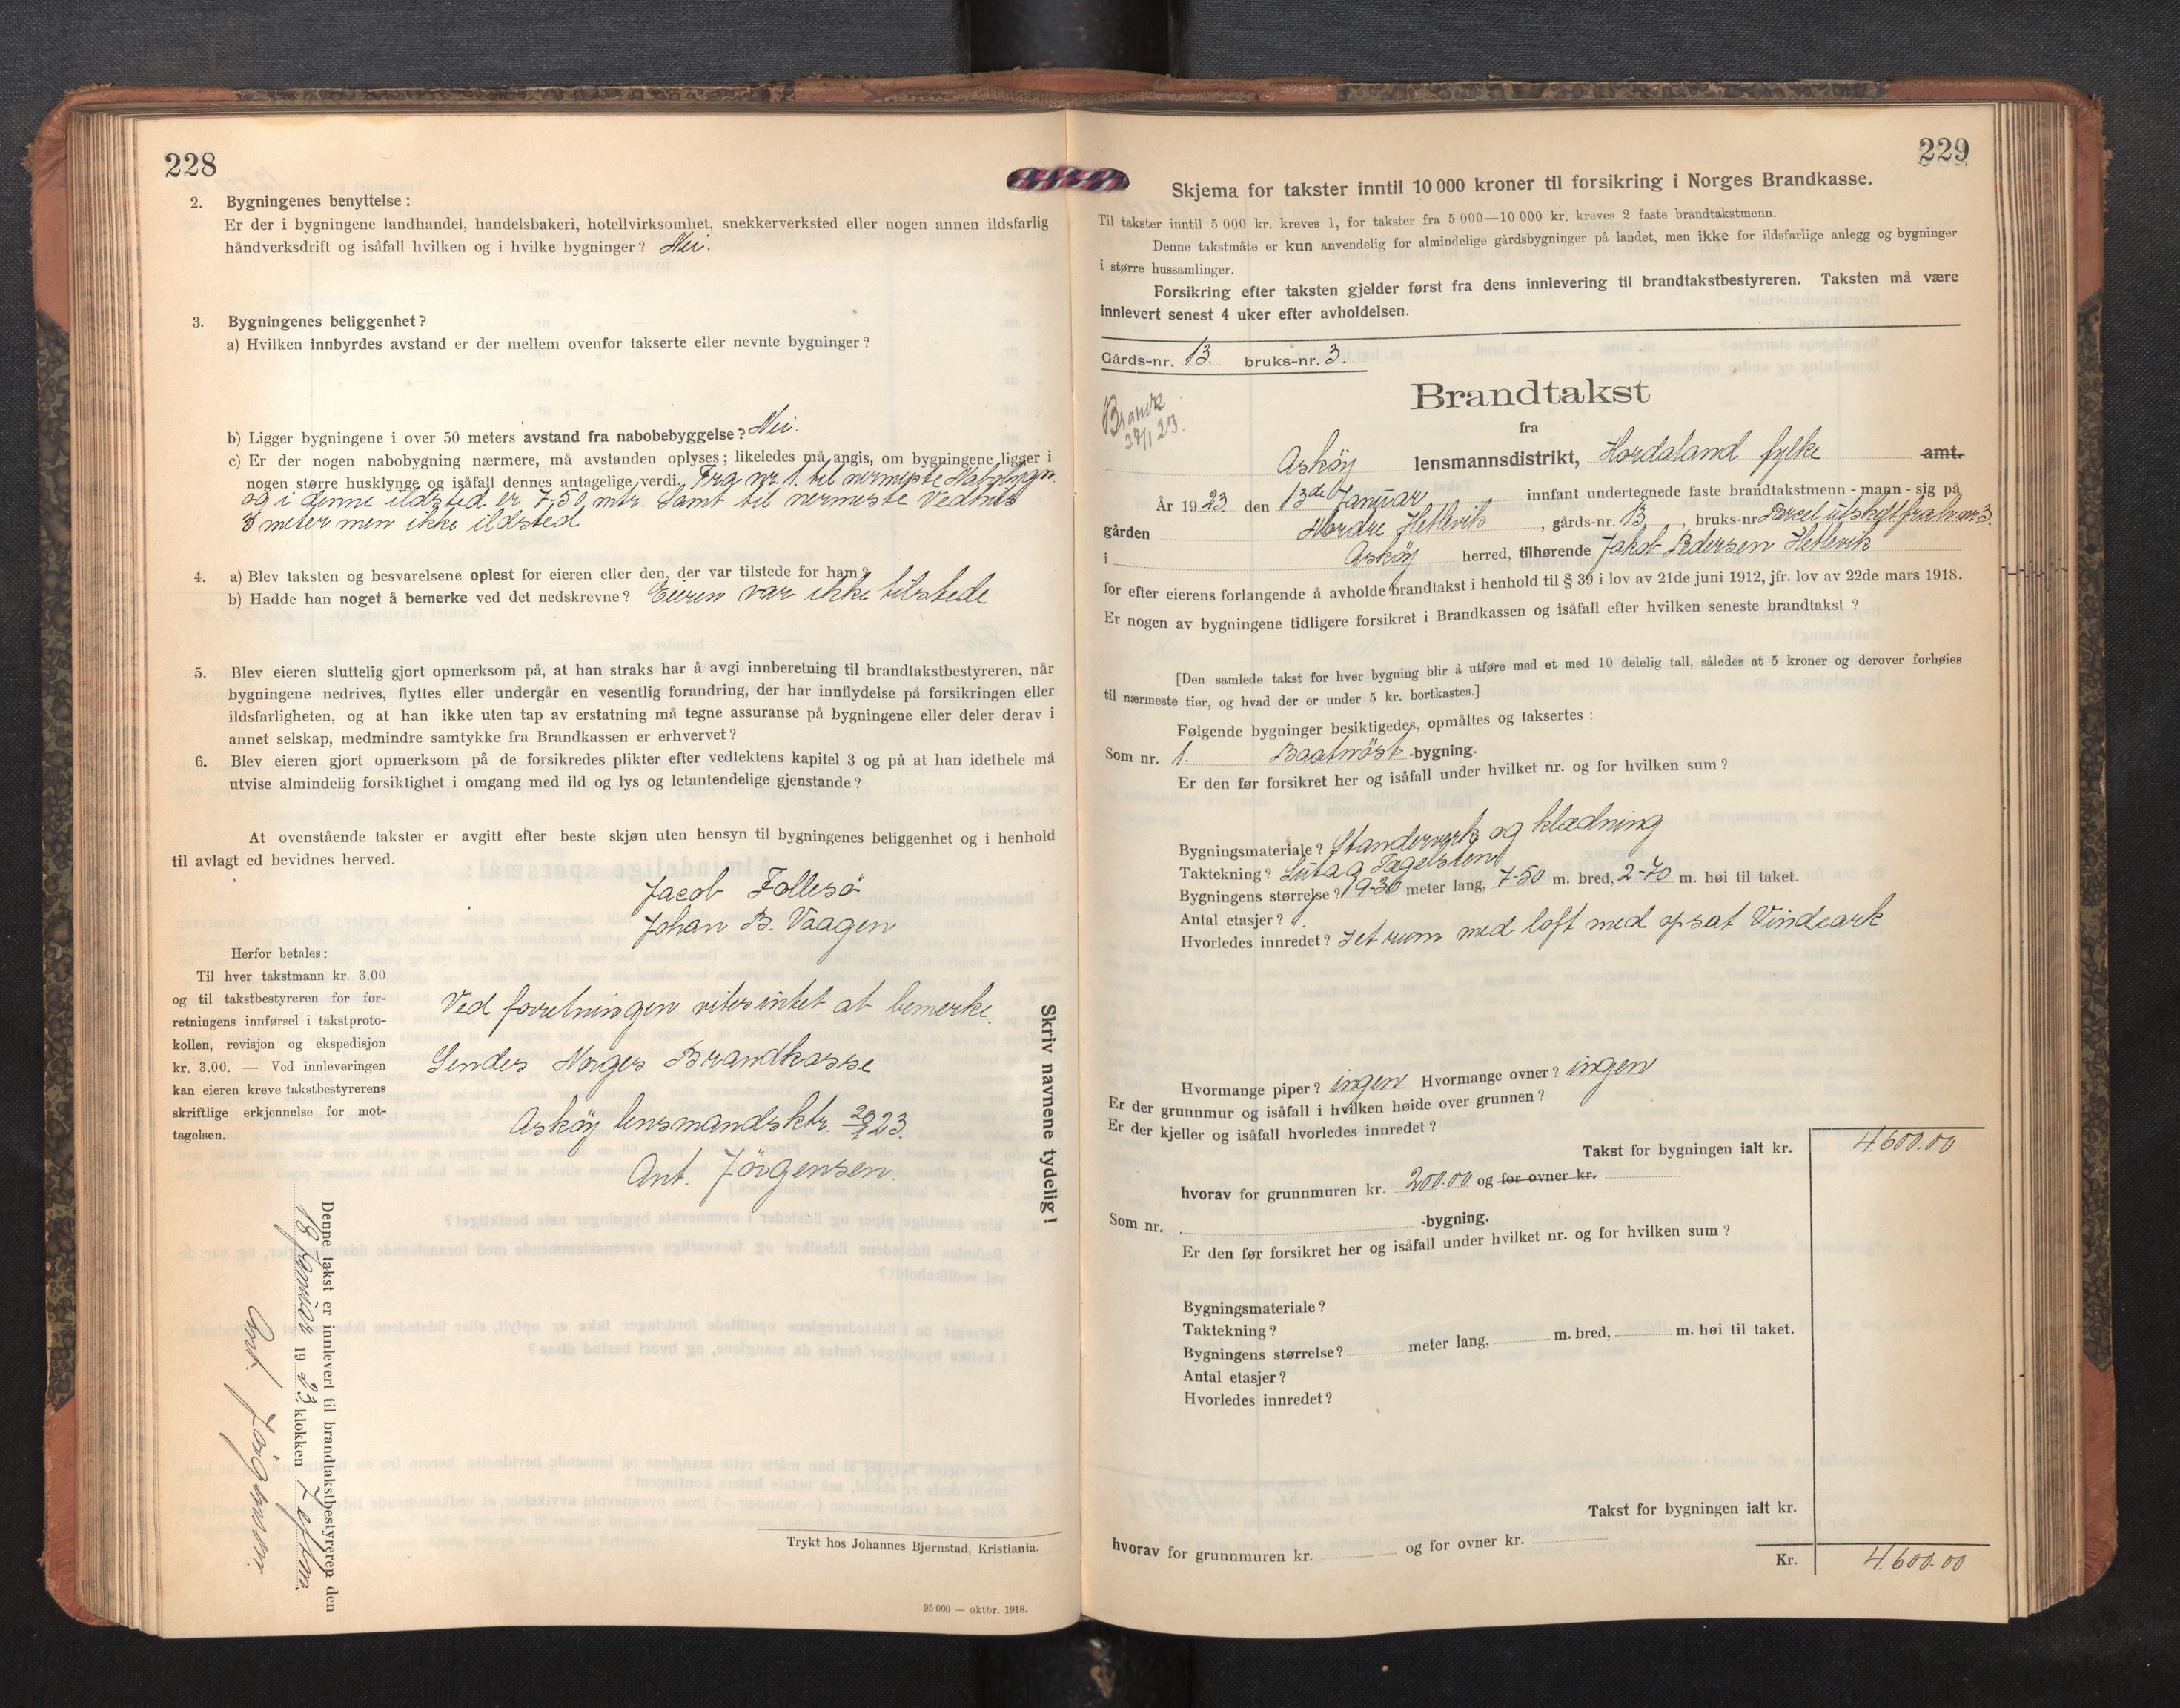 228
2. Bygningenes benyttelse:
Er der i bygningene landhandel, handelsbakeri, hotellvirksomhet, snekkerverksted eller nogen annen ildsfarlig
håndverksdrift og isåfall hvilken og i hvilke bygninger? Nei.
3. Bygningenes beliggenhet?
a) Hvilken innbyrdes avstand er der mellem ovenfor takserte eller nevnte bygninger?
b) Ligger bygningene i over 50 meters avstand fra nabobebyggelse? Nei.
c) Er der nogen nabobygning nærmere, må avstanden oplyses; likeledes må angis, om bygningene ligger i
nogen større husklynge og isåfall dennes antagelige verdi. Fra nr. 1. til nermeste Nabobygn.
og i denne ildsted er 7-50 mtr. Samt til nermeste Vedhus
3 meter men ikke ildsted
4. a) Blev taksten og besvarelsene oplest for eieren eller den, der var tilstede for ham?
b) Hadde han noget å bemerke ved det nedskrevne? Eieren var ikke tilstede
5. Blev eieren sluttelig gjort opmerksom på, at han straks har å avgi innberetning til brandtakstbestyreren, når
bygningene nedrives, flyttes eller undergår en vesentlig forandring, der har innflydelse på forsikringen eller
ildsfarligheten, og at han ikke uten tap av erstatning må tegne assuranse på bygningene eller deler derav i
annet selskap, medmindre samtykke fra Brandkassen er erhvervet?
6. Blev eieren gjort opmerksom på de forsikredes plikter efter vedtektens kapitel 3 og på at han idethele må
utvise almindelig forsiktighet i omgang med ild og lys og letantendelige gjenstande?
At ovenstående takster er avgitt efter beste skjøn uten hensyn til bygningenes beliggenhet og i henhold
til avlagt ed bevidnes herved.
Jacob Follesö
Johan B. Vaagen
Herfor betales:
Til hver takstmann kr. 3.00
og til takstbestyreren for for-
retningens innførsel i takstproto-
kollen, revisjon og ekspedisjon
kr. 3.00. — Ved innleveringen
kan eieren kreve takstbestyrerens
skriftlige erkjennelse for mot-
tagelsen.
Ved forretningen vites intet at bemerke.
Sendes Norges Brandkasse
Asköy lensmandsktr. 20/1 23.
Ant. Jörgensen.
Skriv navnene tydelig!
Denne takst er innlevert til brandtakstbestyreren den
18 Januar 1923 klokken 7 eftm.
Ant. Jörgensen.
Trykt hos Johannes Bjørnstad, Kristiania.
95 000 — oktbr. 1918.
229
Skjema for takster inntil 10 000 kroner til forsikring i Norges Brandkasse.
Til takster inntil 5 000 kr. kreves 1, for takster fra 5 000—10 000 kr. kreves 2 faste brandtakstmenn.
Denne takstmåte er kun anvendelig for almindelige gårdsbygninger på landet, men ikke for ildsfarlige anlegg og bygninger
i større hussamlinger.
Forsikring efter taksten gjelder først fra dens innlevering til brandtakstbestyreren. Taksten må være
innlevert senest 4 uker efter avholdelsen.
Gårds-nr. 13. bruks-nr. 3.
Brandtakst
fra
Asköy lensmannsdistrikt, Hordaland fylke amt.
År 1923 den 13de Januar innfant undertegnede faste brandtakstmenn - mann - sig på
gården Nordre Hetlevik, gårds-nr. 13, bruks-nr. Parcel utskilt fra br. nr 3.
i Asköy herred, tilhørende Jakob Pedersen Hetlevik
for efter eierens forlangende å avholde brandtakst i henhold til § 39 i lov av 21de juni 1912, jfr. lov av 22de mars 1918.
Er nogen av bygningene tidligere forsikret i Brandkassen og isåfall efter hvilken seneste brandtakst?
[Den samlede takst for hver bygning blir å utføre med et med 10 delelig tall, således at 5 kroner og derover forhøies
til nærmeste tier, og hvad der er under 5 kr. bortkastes.]
Følgende bygninger besiktigedes, opmåltes og taksertes:
Som nr. 1. Baatnöst -bygning.
Er den før forsikret her og isåfall under hvilket nr. og for hvilken sum?
Bygningsmateriale? Standerverk og klædning
Taktekning? Suta a Tægelsten
Bygningens størrelse? 19-30 meter lang, 7-50 m. bred, 2-70 m. høi til taket.
Antal etasjer? 1.
Hvorledes innredet? I et rum med loft med opsat Vindeark
Hvormange piper? ingen Hvormange ovner? ingen
Er der grunnmur og isåfall i hvilken høide over grunnen?
Er der kjeller og isåfall hvorledes innredet?
Takst for bygningen ialt kr. 4.600.00
hvorav for grunnmuren kr. 200.00 og for ovner kr.
Som nr. -bygning.
Er den før forsikret her og isåfall under hvilket nr. og for hvilken sum?
Bygningsmateriale?
Taktekning?
Bygningens størrelse? meter lang, m. bred, m. høi til taket.
Antal etasjer?
Hvorledes innredet?
Takst for bygningen ialt kr.
hvorav for grunnmuren kr. og for ovner kr.
Kr. 4.600.00